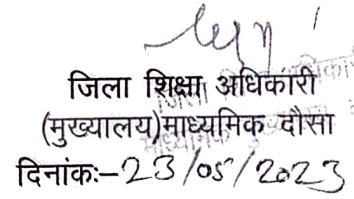 जिला शिक्षा अधिकारी
(मुख्यालय)माध्यमिक दौसा
दिनांक:-23/05/2023